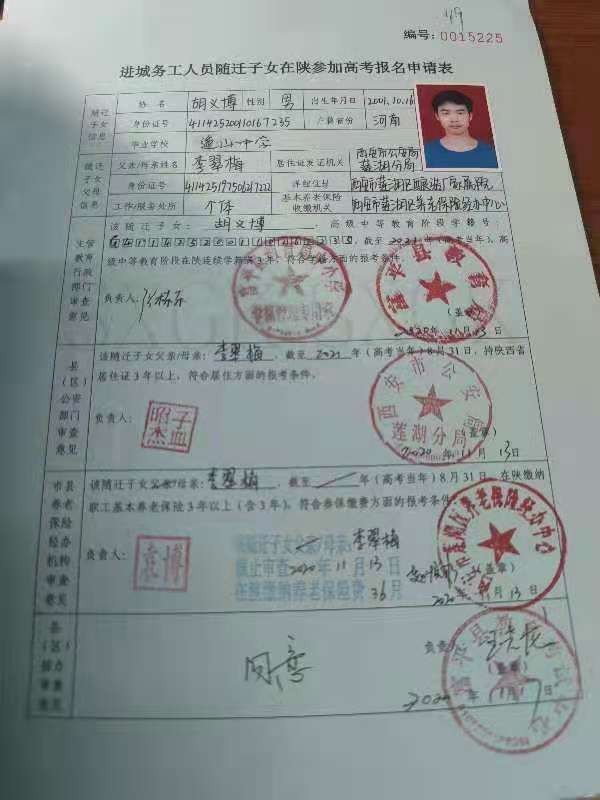 49
编号:0015225
进城务工人员随迁子女在陕参加高考报名申请表
随迁子女信息 姓名 胡义博 性别 男 出生年月日 2001.10.16
身份证号 411425200110167235 户籍省份 河南
毕业学校
随迁子女父母信息 父亲/母亲姓名 李翠梅 居住证发证机关 西安市公安局莲湖分局
身份证号 详细住址
工作/服务处所 个体 基本养老保险收缴机关 西安市莲湖区养老保险经办中心
生管教育行政部门审查意见
该随迁子女:胡义博,高级中等教育阶段学籍号:
截至2021年(高考当年),高
级中等教育阶段在陕连续学籍满3年,符合学籍方面的报考条件。
负责人:
(盖章)
2020年11月13日
县(区)公安部门审查意见
该随迁子女父亲/母亲:李翠梅,截至2021年(高考当年)8月31日,持陕西省
居住证3年以上,符合居住方面的报考条件。
负责人:
西安市公安局
莲湖分局
(盖章)
2020年11月13日
市县养老保险经办机构审查意见
该随迁子女父亲/母亲:李翠梅,截至 年(高考当年)8月31日,在陕缴纳
职工基本养老保险3年以上(含3年),符合参保缴费方面的报考条件。
负责人:
袁博
该随迁子女父亲/母亲:李翠梅
截止审查2020年11月13日
在陕缴纳养老保险费36月
莲湖区养老保险经办中心
(盖章)
2020年11月13日
县(区)招办审查意见
同意
负责人:
(盖章)
2020年11月17日